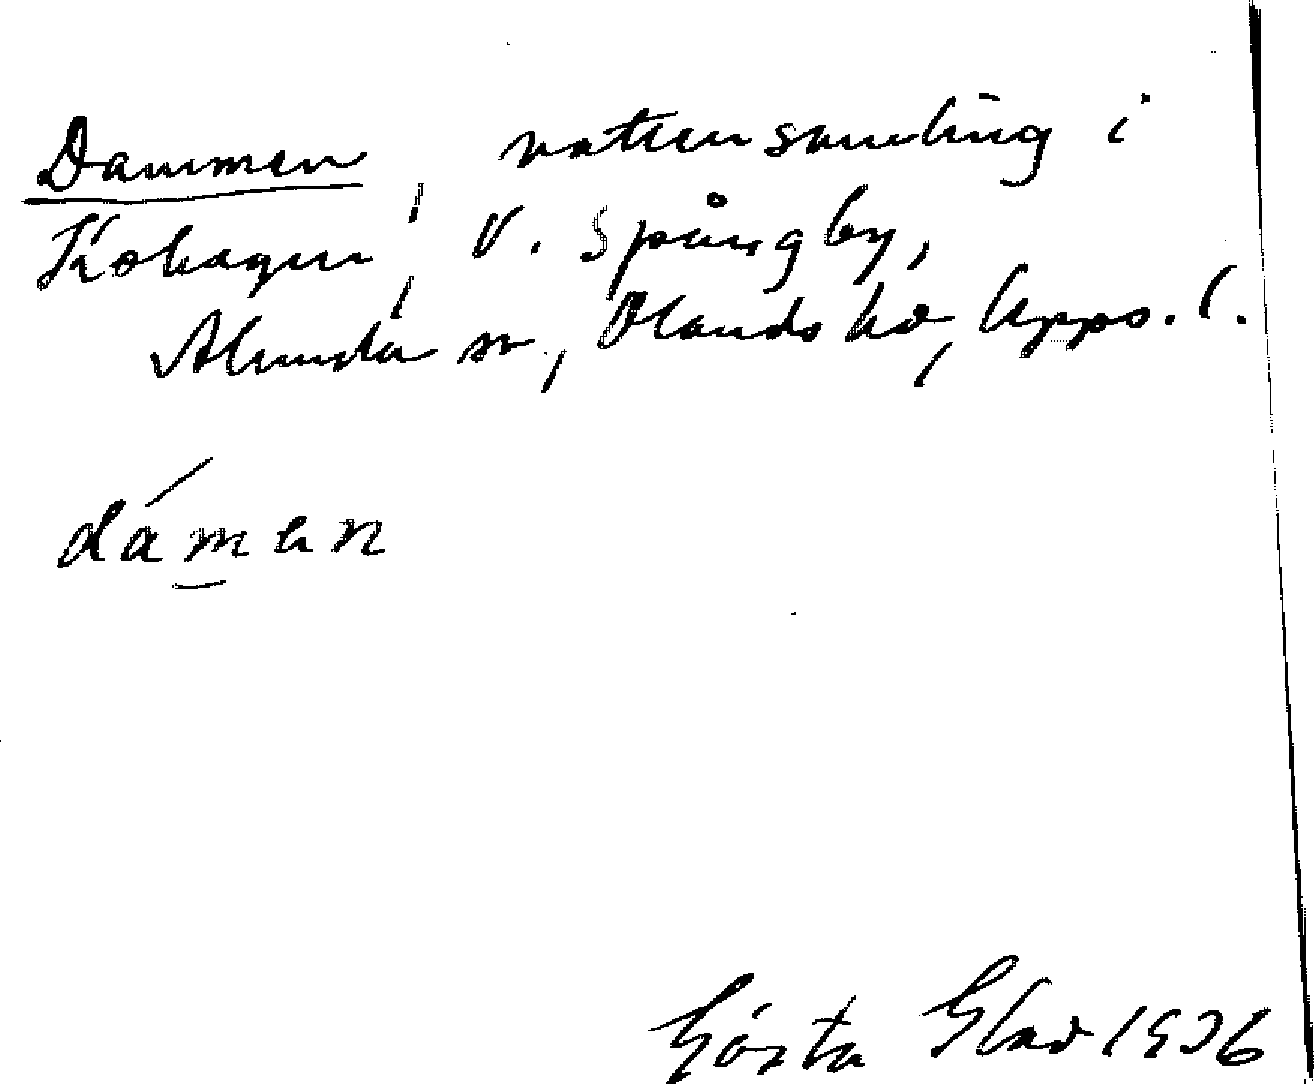 Dammen, vattensamling i
Kohagen, V. Spångby,
Alunda sn, Olands hd, Upps. l.
dám̲en
Gösta Glad 1936